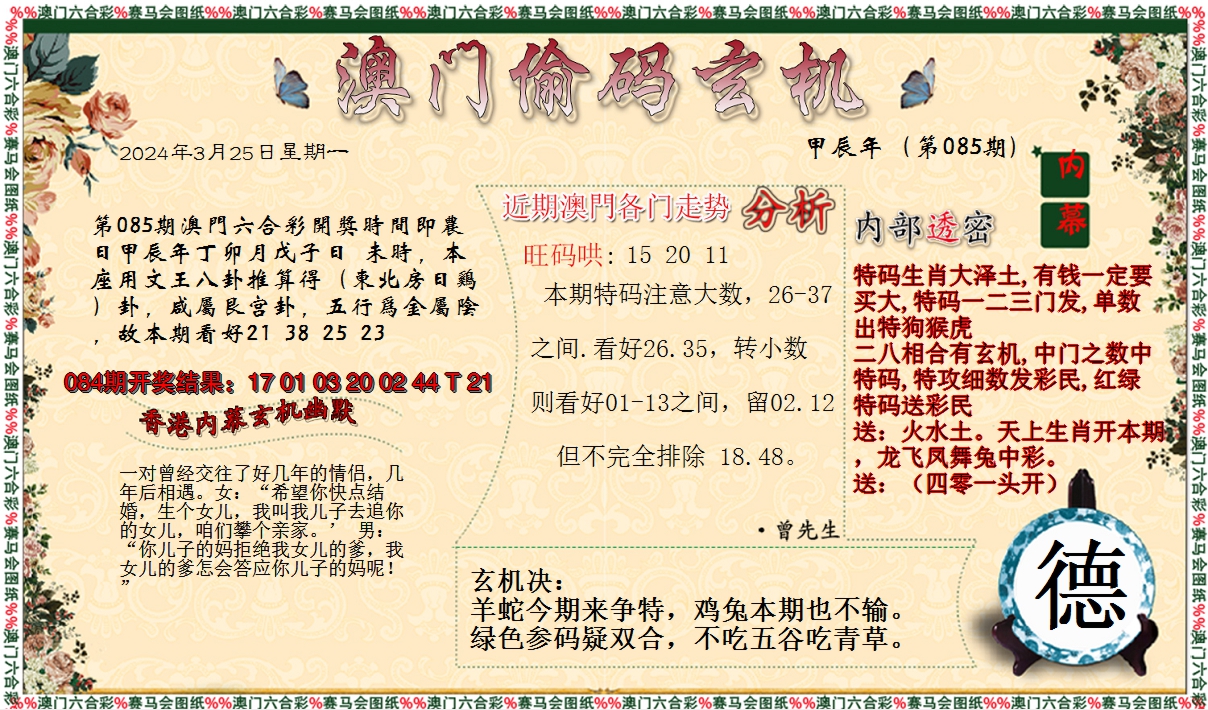 %%澳门六合彩%赛马会图纸%%澳门六合彩%赛马会图纸%%澳门六合彩%赛马会图纸%%澳门六合彩%赛马会图纸%%澳门六合彩%赛马会图纸%%澳门六合彩%赛马会图纸%%
澳门偷码玄机
2024年3月25日星期一
甲辰年（第085期）
内
幕
第085期澳門六合彩開獎時間即農
日甲辰年丁卯月戊子日 未時，本
座用文王八卦推算得（東北房日鷄
）卦，咸屬艮宫卦，五行爲金屬陰
，故本期看好21 38 25 23
084期开奖结果：17 01 03 20 02 44 T 21
香港内幕玄机幽默
一对曾经交往了好几年的情侣，几
年后相遇。女：“希望你快点结
婚，生个女儿，我叫我儿子去追你
的女儿，咱们攀个亲家。’ 男：
“你儿子的妈拒绝我女儿的爹，我
女儿的爹怎会答应你儿子的妈呢！
”
近期澳門各门走势 分析
旺码哄: 15 20 11
本期特码注意大数，26-37
之间.看好26.35，转小数
则看好01-13之间，留02.12
但不完全排除 18.48。
·曾先生
内部透密
特码生肖大泽土,有钱一定要
买大,特码一二三门发,单数
出特狗猴虎
二八相合有玄机,中门之数中
特码,特攻细数发彩民,红绿
特码送彩民
送：火水土。天上生肖开本期
，龙飞凤舞兔中彩。
送：（四零一头开）
玄机决：
羊蛇今期来争特，鸡兔本期也不输。
绿色参码疑双合，不吃五谷吃青草。
德
%%澳门六合彩%赛马会图纸%%澳门六合彩%赛马会图纸%%澳门六合彩%赛马会图纸%%澳门六合彩%赛马会图纸%%澳门六合彩%赛马会图纸%%澳门六合彩%赛马会图纸%%